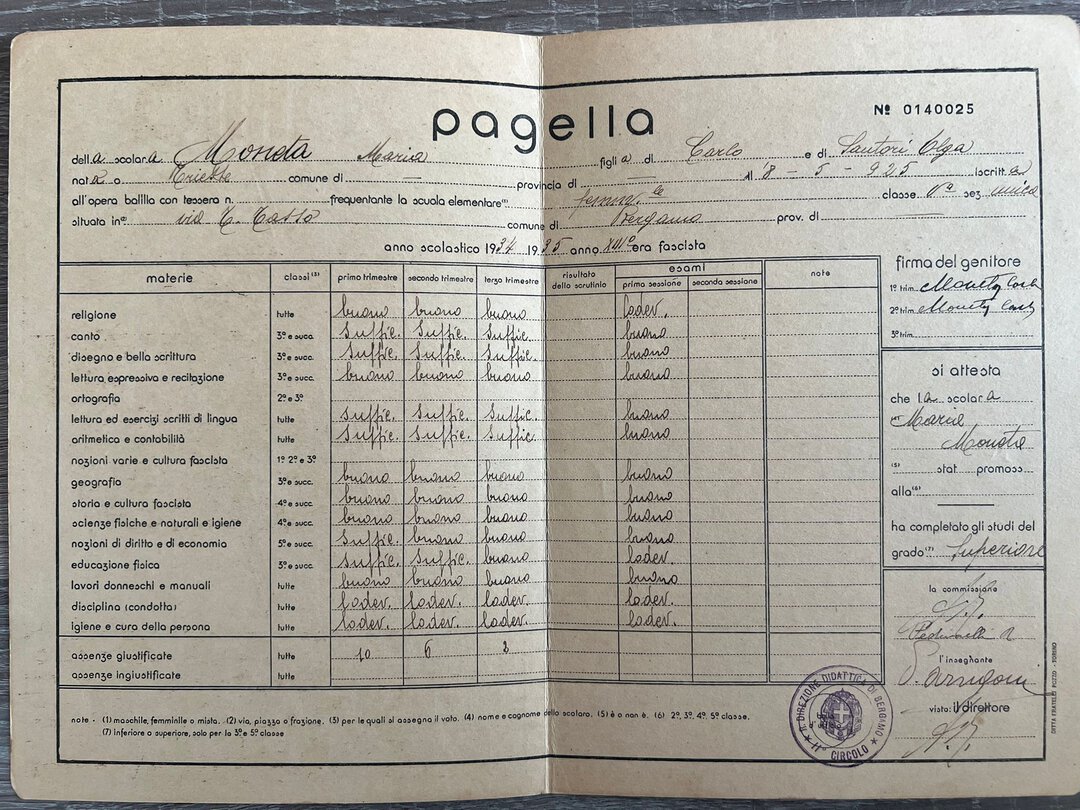 pagella
Nº 0140025
della scolara Moneta Maria figlia di Carlo e di Santori Olga
nata a Trieste comune di — provincia di — il 8-5-925 Iscritta
all'opera balilla con tessera n. frequentante la scuola elementare⁽¹⁾ femm.le classe Vª sez. unica
situata in⁽²⁾ via T. Tasso comune di Bergamo prov. di —
anno scolastico 1934 1935 anno XIIIº era fascista
materie classi⁽³⁾ primo trimestre secondo trimestre terzo trimestre risultato dello scrutinio esami prima sessione seconda sessione note
religione tutte buono buono buono lodev.
canto 3ª e succ. Suffic. Suffic. Suffic. buono
disegno e bella scrittura 3ª e succ. Suffic. Suffic. Suffic. buono
lettura espressiva e recitazione 3ª e succ. buono buono buono buono
ortografia 2ª e 3ª
lettura ed esercizi scritti di lingua tutte Suffic. Suffic. Suffic. buono
aritmetica e contabilità tutte Suffic. Suffic. Suffic. buono
nozioni varie e cultura fascista 1ª 2ª e 3ª
geografia 3ª e succ. buono buono buono buono
storia e cultura fascista 4ª e succ. buono buono buono buono
scienze fisiche e naturali e igiene 4ª e succ. buono buono buono buono
nozioni di diritto e di economia 5ª e succ. Suffic. buono buono buono
educazione fisica tutte Suffic. Suffic. buono lodev.
lavori donneschi e manuali tutte buono buono buono buono
disciplina (condotta) tutte lodev. lodev. lodev. lodev.
igiene e cura della persona tutte lodev. lodev. lodev. lodev.
assenze giustificate tutte 10 6 2
assenze ingiustificate tutte
note - (1) maschile, femminile o mista. (2) via, piazza o frazione. (3) per le quali si assegna il voto. (4) nome e cognome dello scolaro. (5) è o non è. (6) 2ª, 3ª, 4ª, 5ª classe.
(7) inferiore o superiore, solo per la 3ª e 5ª classe
firma del genitore
1º trim. Moneta Carlo
2º trim. Moneta Carlo
3º trim.
si attesta
che la scolara
Maria
Moneta
⁽⁵⁾ stat promoss
alla⁽⁶⁾
ha completato gli studi del
grado⁽⁷⁾ Superiore
la commissione
l'insegnante
visto: il direttore
R. DIREZIONE DIDATTICA DI BERGAMO
IIº CIRCOLO
DITTA FRATELLI POZZO - TORINO